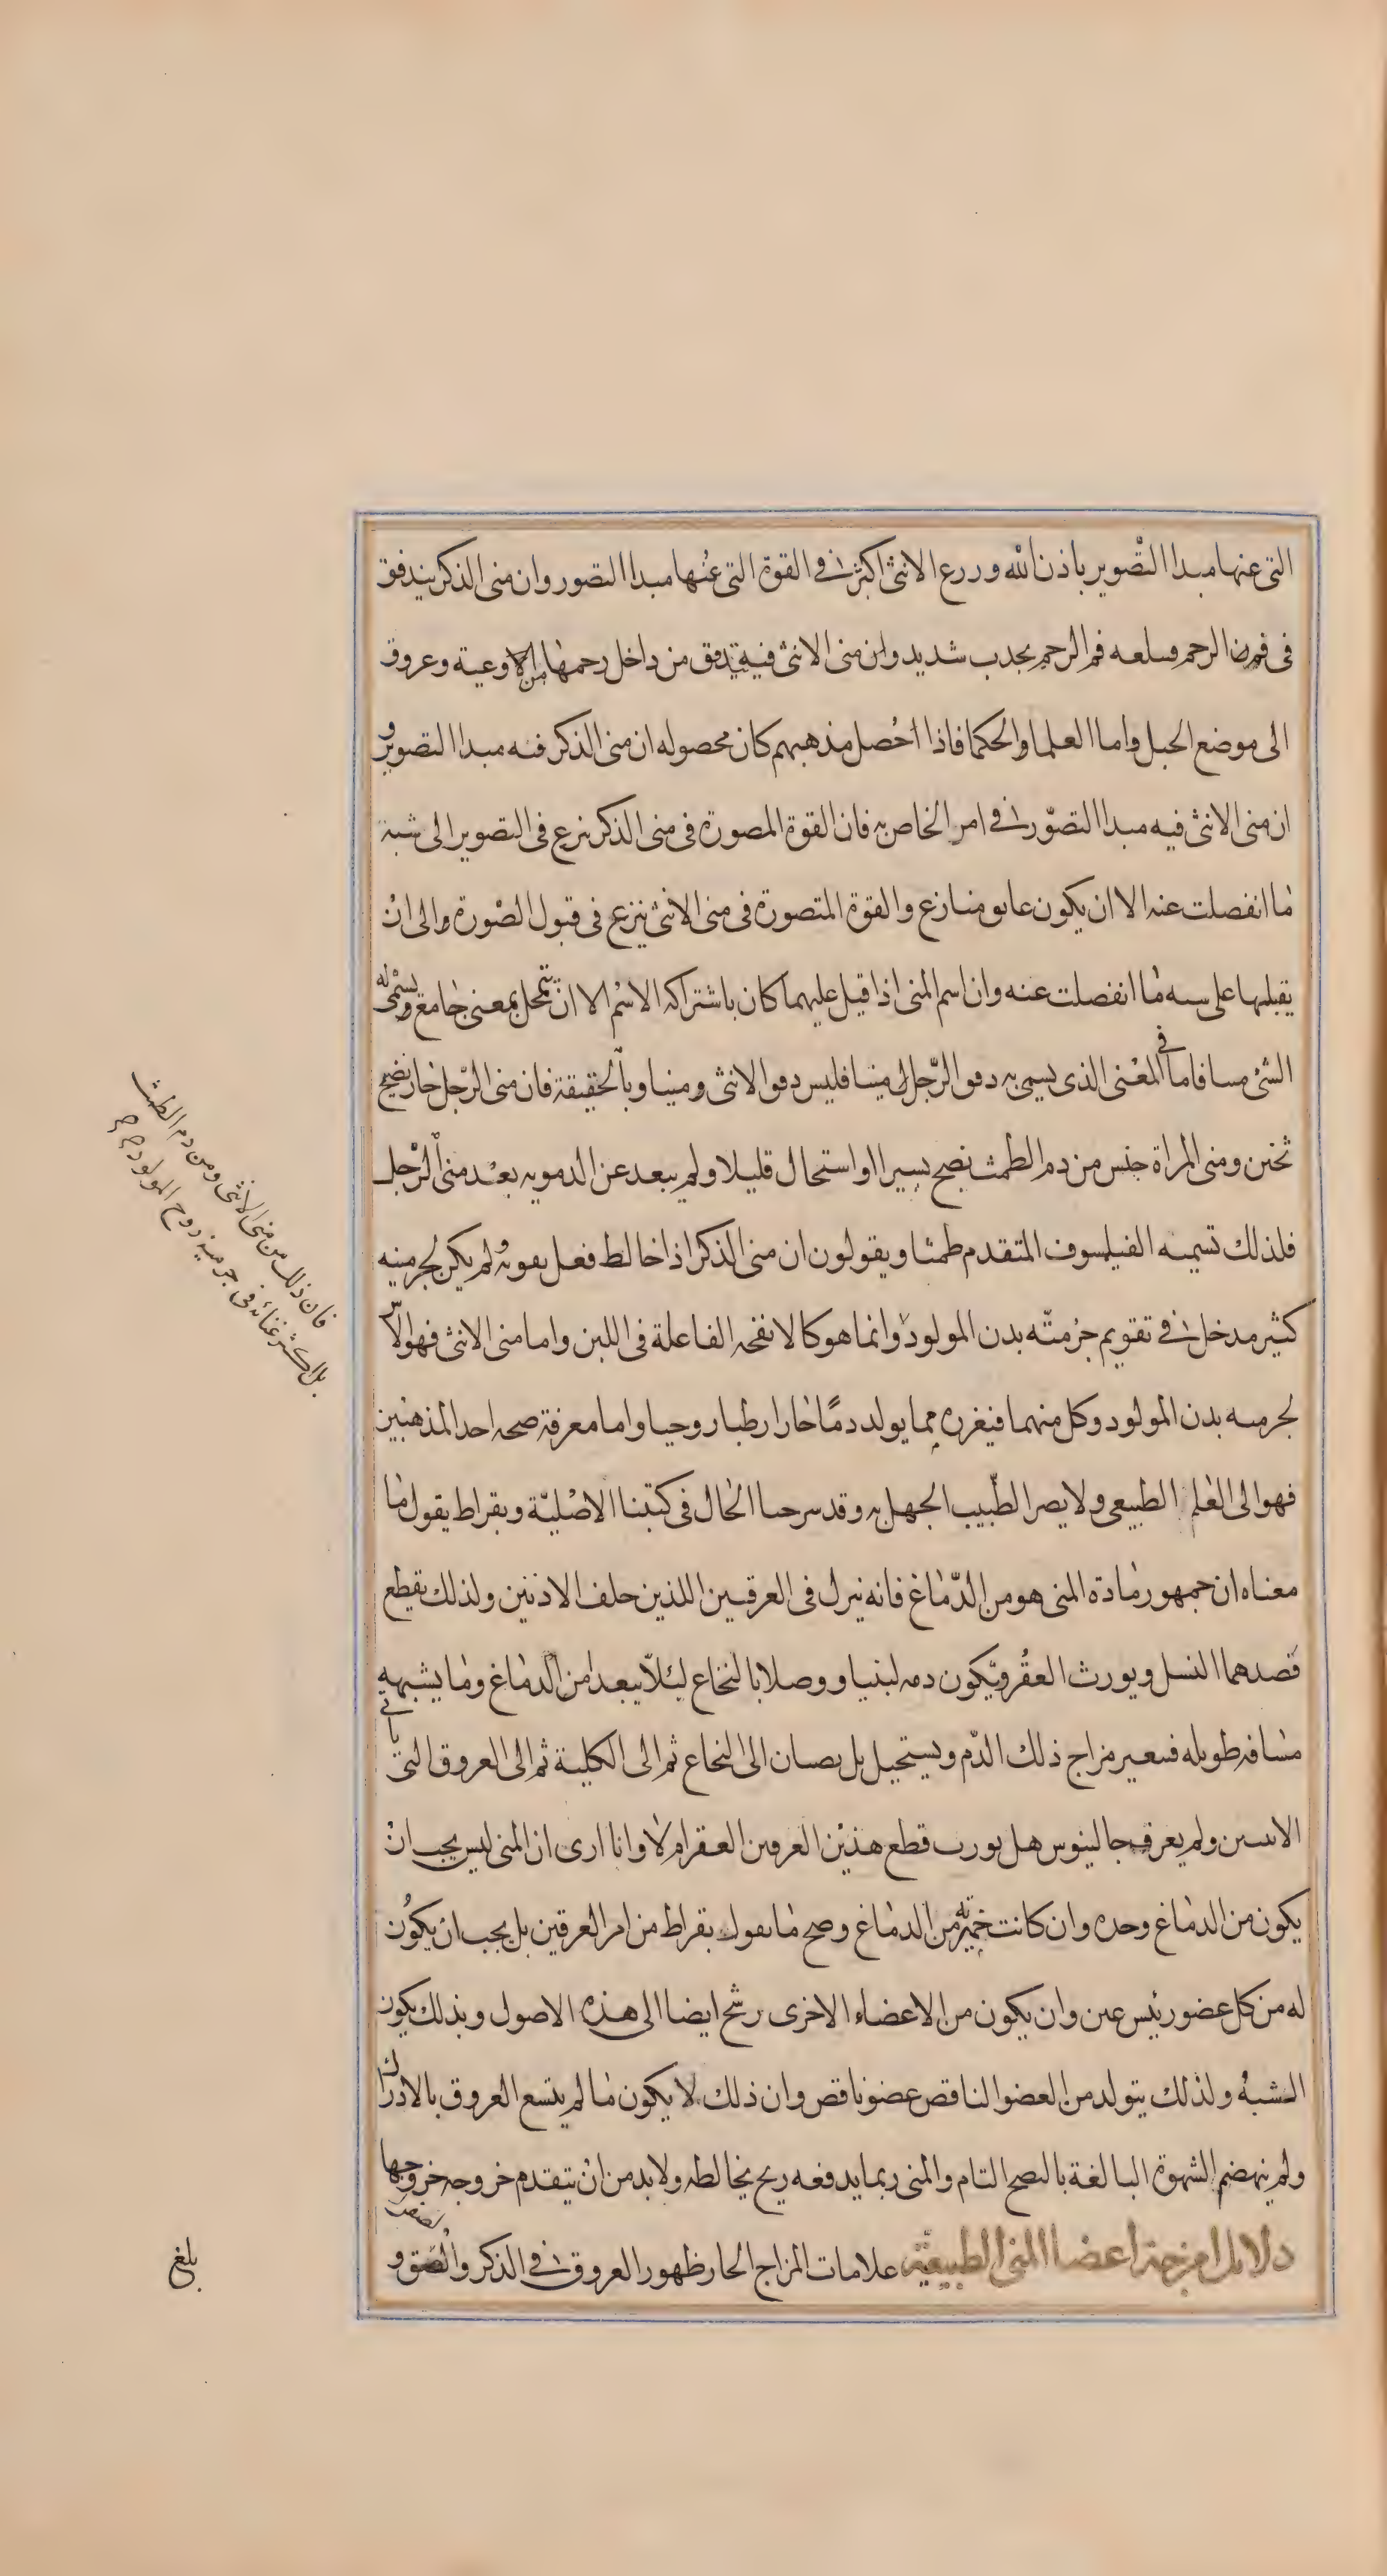 التى عنها مبدا التصوير باذن الله وررع الانثى اكثر فى القوة التى عنها مبدا التصور وان منى الذكر يندفق
فى فم الرحم فسلعه فم الرحم بجذب شديد وان منى الانثى فيه يتدفق من داخل رحمها من الاوعية وعروق
الى موضع الحبل واما العلما والحكما فاذا احصل مذهبهم كان محصوله ان منى الذكر فيه مبدا التصوير و
ان منى الانثى فيه مبدا التصور فى امر الخاص به فان القوة المصورة فى منى الذكر ينزع فى التصوير الى شبه
ما انفصلت عنه الا ان يكون عايق ومنازع والقوة المتصورة فى منى الانثى ينزع فى قبول الصورة والى ان
يقبلها على سبه ما انفصلت عنه وان اسم المنى اذا قيل عليهما كان باشتراكه الاسم الا ان يتمحل بمعنى جامع ويسمى له
الشئ مسا فاما فى المعنى الذى يسمى به دفو الرجل منيا فليس دفو الانثى ومنيا وبالحقيقة فان منى الرجل حار نضيج
ثخين ومنى المراة جنس من دم الطمث نضج يسيرا او استحال قليلا ولم يبعد عن الدمويه بعد منى الرجل
فلذلك تسيمه الفيلسوف المتقدم طمثا ويقولون ان منى الذكر اذا خالط فعل بقوته ولم يكن لجرمنيه
كثير مدخل فى تقويم جرمتّه بدن المولود وانما هو كالانفحه الفاعلة فى اللبن واما منى الانثى فهو الاس
لجرميه بدن المولود وكل منهما فيغزره مما يولد دمًا حارا رطبا روحيا واما معرفة صحه احد المذهبين
فهو الى العلم الطبيعى ولا يضر الطبيب الجهل به وقد سرحنا الحال فى كتبنا الاصلية وبقراط يقول ما
معناه ان جمهور مادة المنى هو من الدماغ فانه نيزل فى العرقين اللذين خلف الاذنين ولذلك يقطع
فصدهما النسل ويورث العقر ويكون دمه لبنيا ووصلا بالنخاع ليلا يبعدا من الدماغ وما يشبهه
مسافه طويله فيتغير مزاج ذلك الدم ويستحيل بل يصبان الى النخاع ثم الى الكلية ثم الى العروق التى ياتى
الانثيين ولم يعرف جالينوس هل يورث قطع هذين العرقين العقر ام لا وانا ارى ان المنى ليس يجب ان
يكون من الدماغ وحده وان كانت خميرته من الدماغ وصح ما يقول بقراط من امر العرقين بل يجب ان يكون
له من كل عضو رئيس عين وان يكون من الاعضاء الاخرى رشح ايضا الى هذه الاصول وبذلك يكون
الشبه ولذلك يتولد من العضو الناقص عضو ناقص وان ذلك لا يكون ما لم يتسع العروق بالادراك
ولم ينهضم الشهوة البالغة بالنضج التام والمنى ربما يدفعه ريح يخالطه ولا بد من ان يتقدم خروجه خروجها
دلايل امزجة اعضا المنى الطبيعية علامات المزاج الحار ظهور العروق فى الذكر والصفن و
فان ذلك من منى الانثى ومن دم الطمث
بل اكثر غناءه فى جرمية روح المولود
بلغ